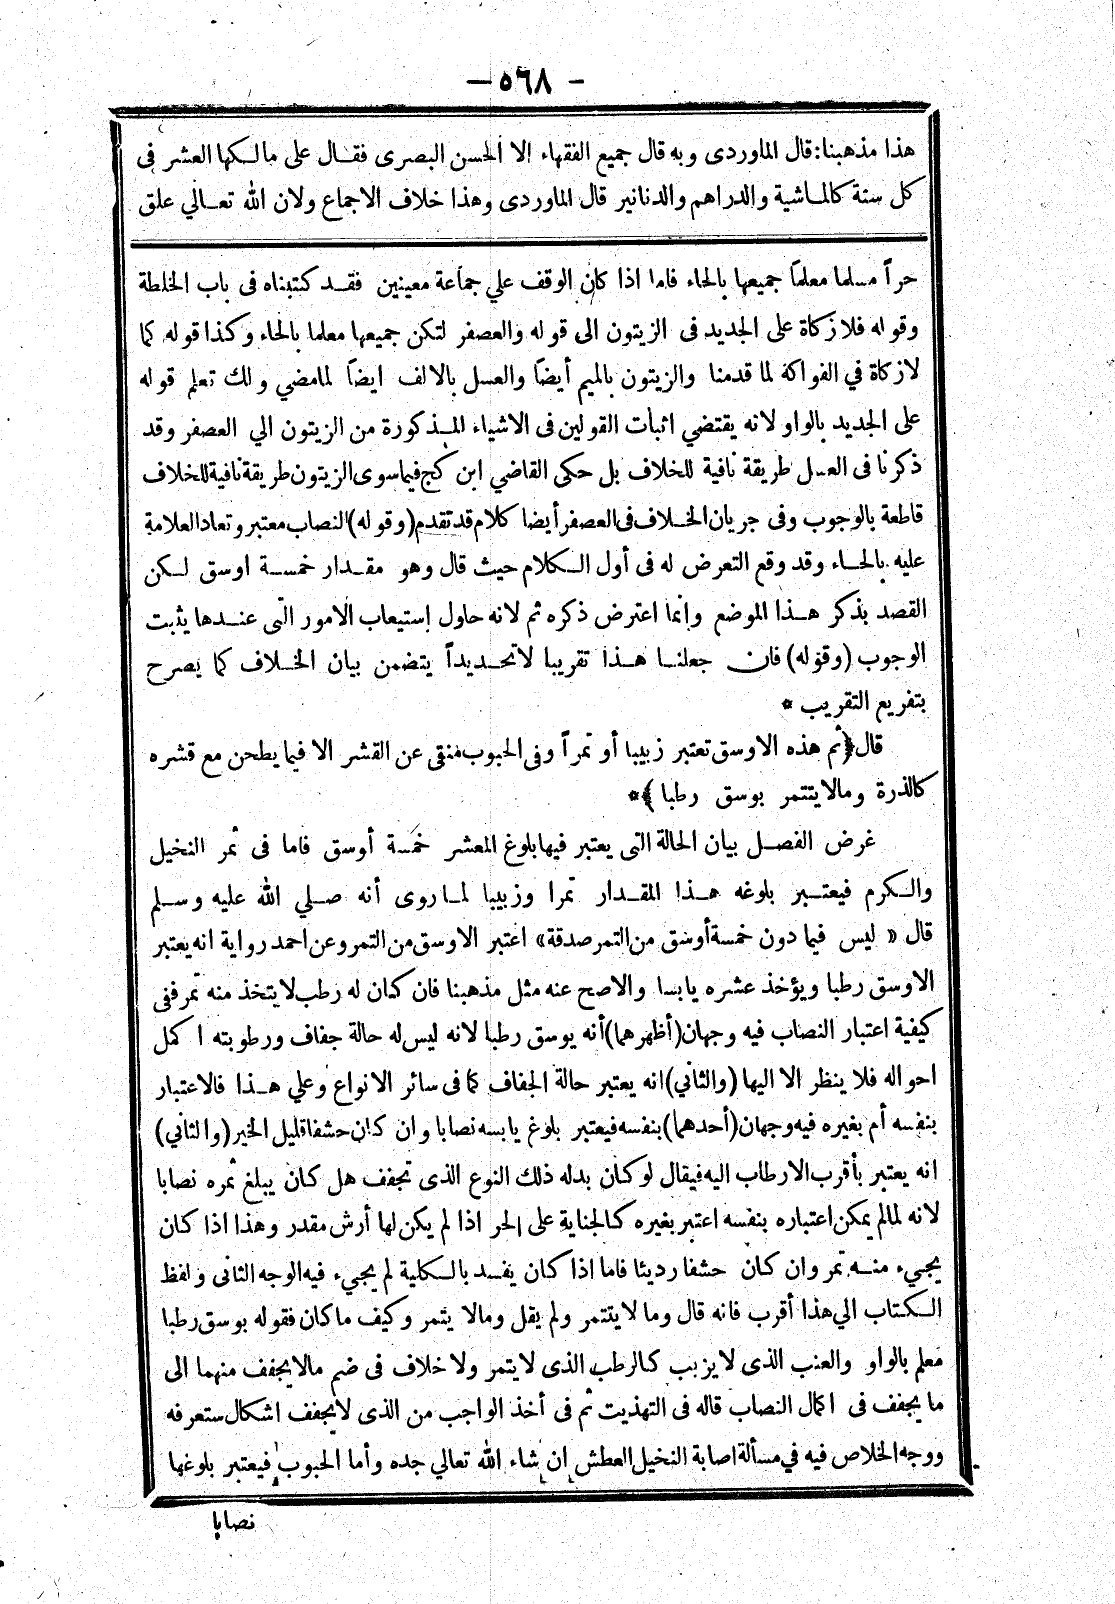 - ٥٦٨ -
هذا مذهبنا: قال الماوردى وبه قال جميع الفقهاء إلا الحسن البصرى فقال على مالكها العشر فى
كل سنة كالماشية والدراهم والدنانير قال الماوردى وهذا خلاف الاجماع ولان الله تعالي علق
حراً مسلما معلماً جميعها بالحاء فاما اذا كان الوقف علي جماعة معينين فقد كتبناه فى باب الخلطة
وقوله فلا زكاة على الجديد فى الزيتون الى قوله والعصفر لتكن جميعها معلما بالحاء وكذا قوله كما
لا زكاة في الفواكه لما قدمنا والزيتون بالميم أيضاً والعسل بالالف ايضاً لما مضي ولك تعلم قوله
على الجديد بالواو لانه يقتضي اثبات القولين فى الاشياء المذكورة من الزيتون الي العصفر وقد
ذكرنا فى العسل طريقة نافية للخلاف بل حكى القاضي ابن كج فيما سوى الزيتون طريقة نافية للخلاف
قاطعة بالوجوب وفى جريان الخلاف فى العصفر أيضا كلام قد تقدم (وقوله) النصاب معتبر وتعاد العلامة
عليه بالحاء وقد وقع التعرض له فى أول الكلام حيث قال وهو مقدار خمسة اوسق لكن
القصد بذكر هذا الموضع وإنما اعترض ذكره ثم لانه حاول إستيعاب الامور التى عندها يثبت
الوجوب (وقوله) فان جعلنا هذا تقريبا لا تحديداً يتضمن بيان الخلاف كما يصرح
بتفريع التقريب *
قال ﴿ثم هذه الاوسق تعتبر زبيبا أو تمراً وفى الحبوب منقى عن القشر الا فيما يطحن مع قشره
كالذرة ومالا يتتمر يوسق رطبا﴾*
غرض الفصل بيان الحالة التى يعتبر فيها بلوغ المعشر خمسة أوسق فاما فى ثمر النخيل
والكرم فيعتبر بلوغه هذا المقدار تمرا وزبيبا لما روى أنه صلي الله عليه وسلم
قال « ليس فيما دون خمسة أوسق من التمر صدقة» اعتبر الاوسق من التمر وعن احمد رواية انه يعتبر
الاوسق رطبا ويؤخذ عشره يابسا والاصح عنه مثل مذهبنا فان كان له رطب لا يتخذ منه تمر ففى
كيفية اعتبار النصاب فيه وجهان (أظهرهما) أنه يوسق رطبا لانه ليس له حالة جفاف ورطوبته اكمل
احواله فلا ينظر الا اليها (والثاني) انه يعتبر حالة الجفاف كما فى سائر الانواع وعلي هذا فالاعتبار
بنفسه أم بغيره فيه وجهان (أحدهما) بنفسه فيعتبر بلوغ يابسه نصابا وان كان حشفا قليل الخير (والثاني)
انه يعتبر بأقرب الارطاب اليه فيقال لو كان بدله ذلك النوع الذى تجفف هل كان يبلغ ثمره نصابا
لانه لما لم يمكن اعتباره بنفسه اعتبر بغيره كالجناية على الحر اذا لم يكن لها أرش مقدر وهذا اذا كان
يجيء منه تمر وان كان حشفا رديئا فاما اذا كان يفسد بالكلية لم يجيء فيه الوجه الثانى ولفظ
الكتاب الي هذا أقرب فانه قال وما لا يتتمر ولم يقل ومالا يثمر وكيف ما كان فقوله يوسق رطبا
معلم بالواو والعنب الذى لا يزبب كالرطب الذى لا يتمر ولا خلاف فى ضم مالا يجفف منهما الى
ما يجفف فى اكمال النصاب قاله فى التهذيت ثم فى أخذ الواجب من الذى لا يجفف اشكال ستعرفه
ووجه الخلاص فيه في مسألة اصابة النخيل العطش ان شاء الله تعالي جده وأما الحبوب فيعتبر بلوغها
نصابا